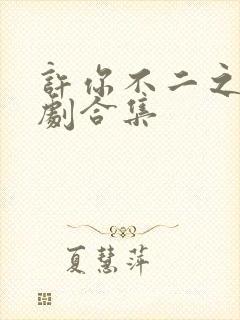 許你不二之
劇合集
夏慧萍